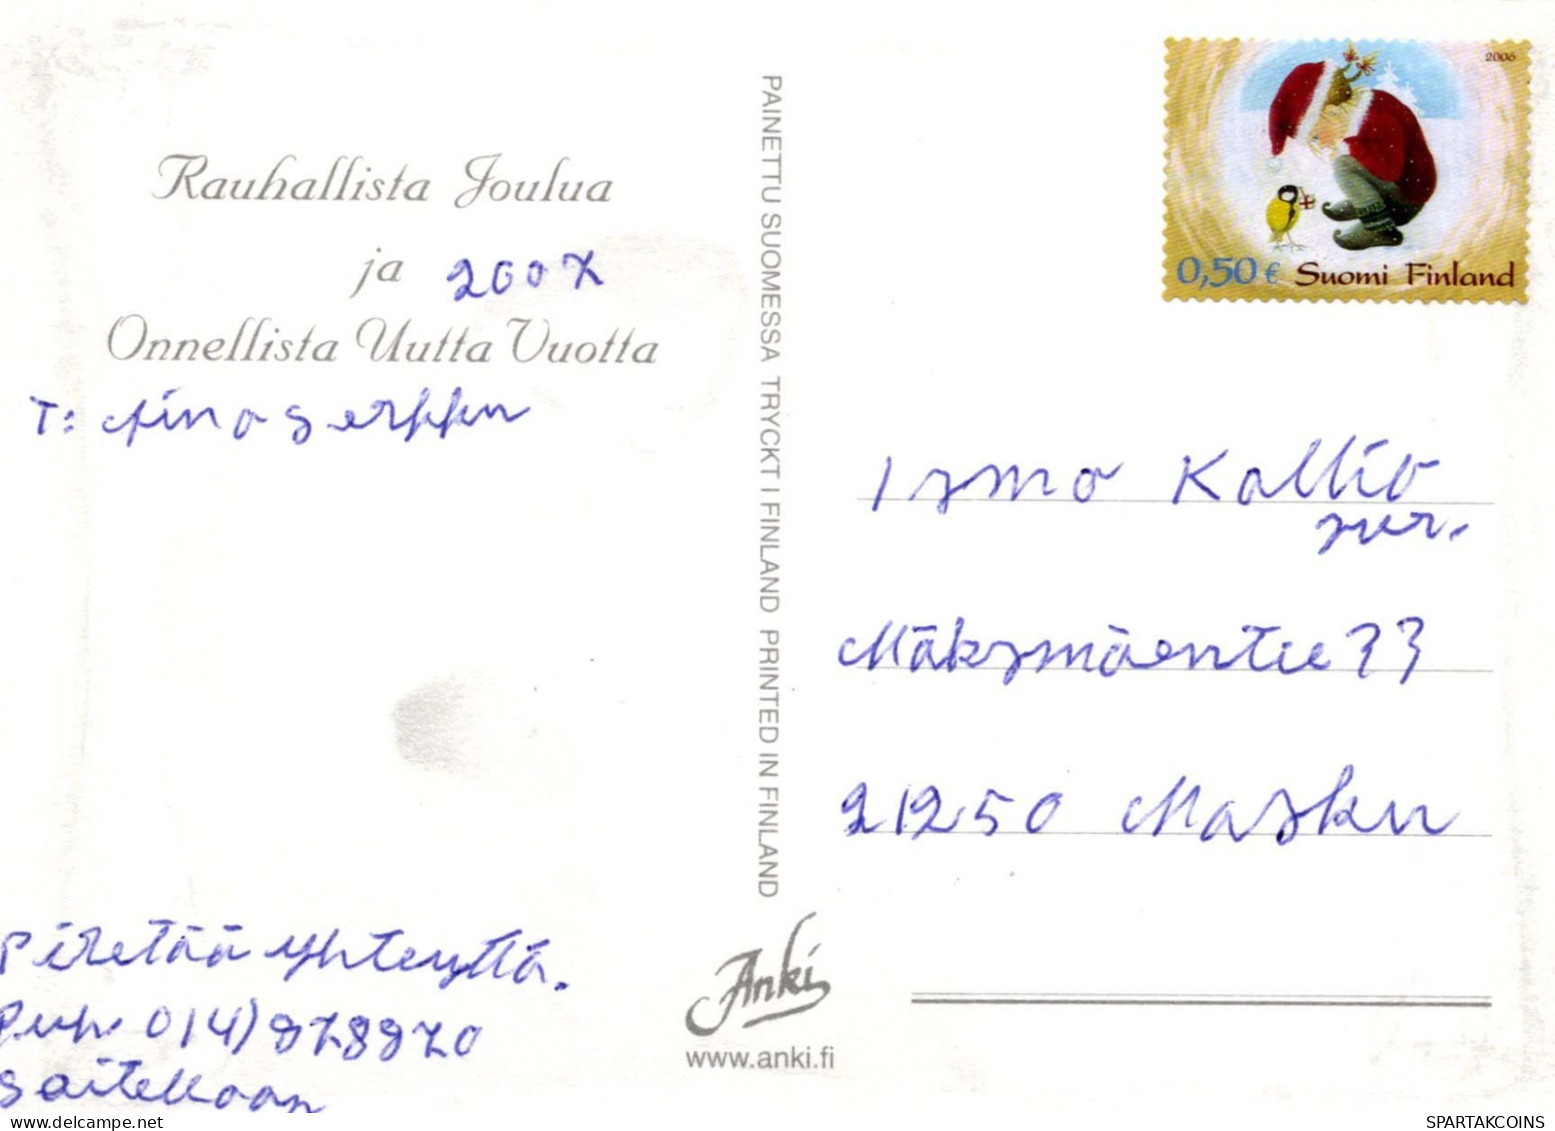 Rauhallista Joulua
ja 2007
Onnellista Uutta Vuotta
T: Aino Serkku
Piretää yhteyttä.
Puh. 014) 878870
Soitellaan
PAINETTU SUOMESSA TRYCKT I FINLAND PRINTED IN FINLAND
Anki
www.anki.fi
2006
0,50 € Suomi Finland
Ismo Kallio
per.
Mäksmäentie 33
21250 Masku
SPARTAKCOINS